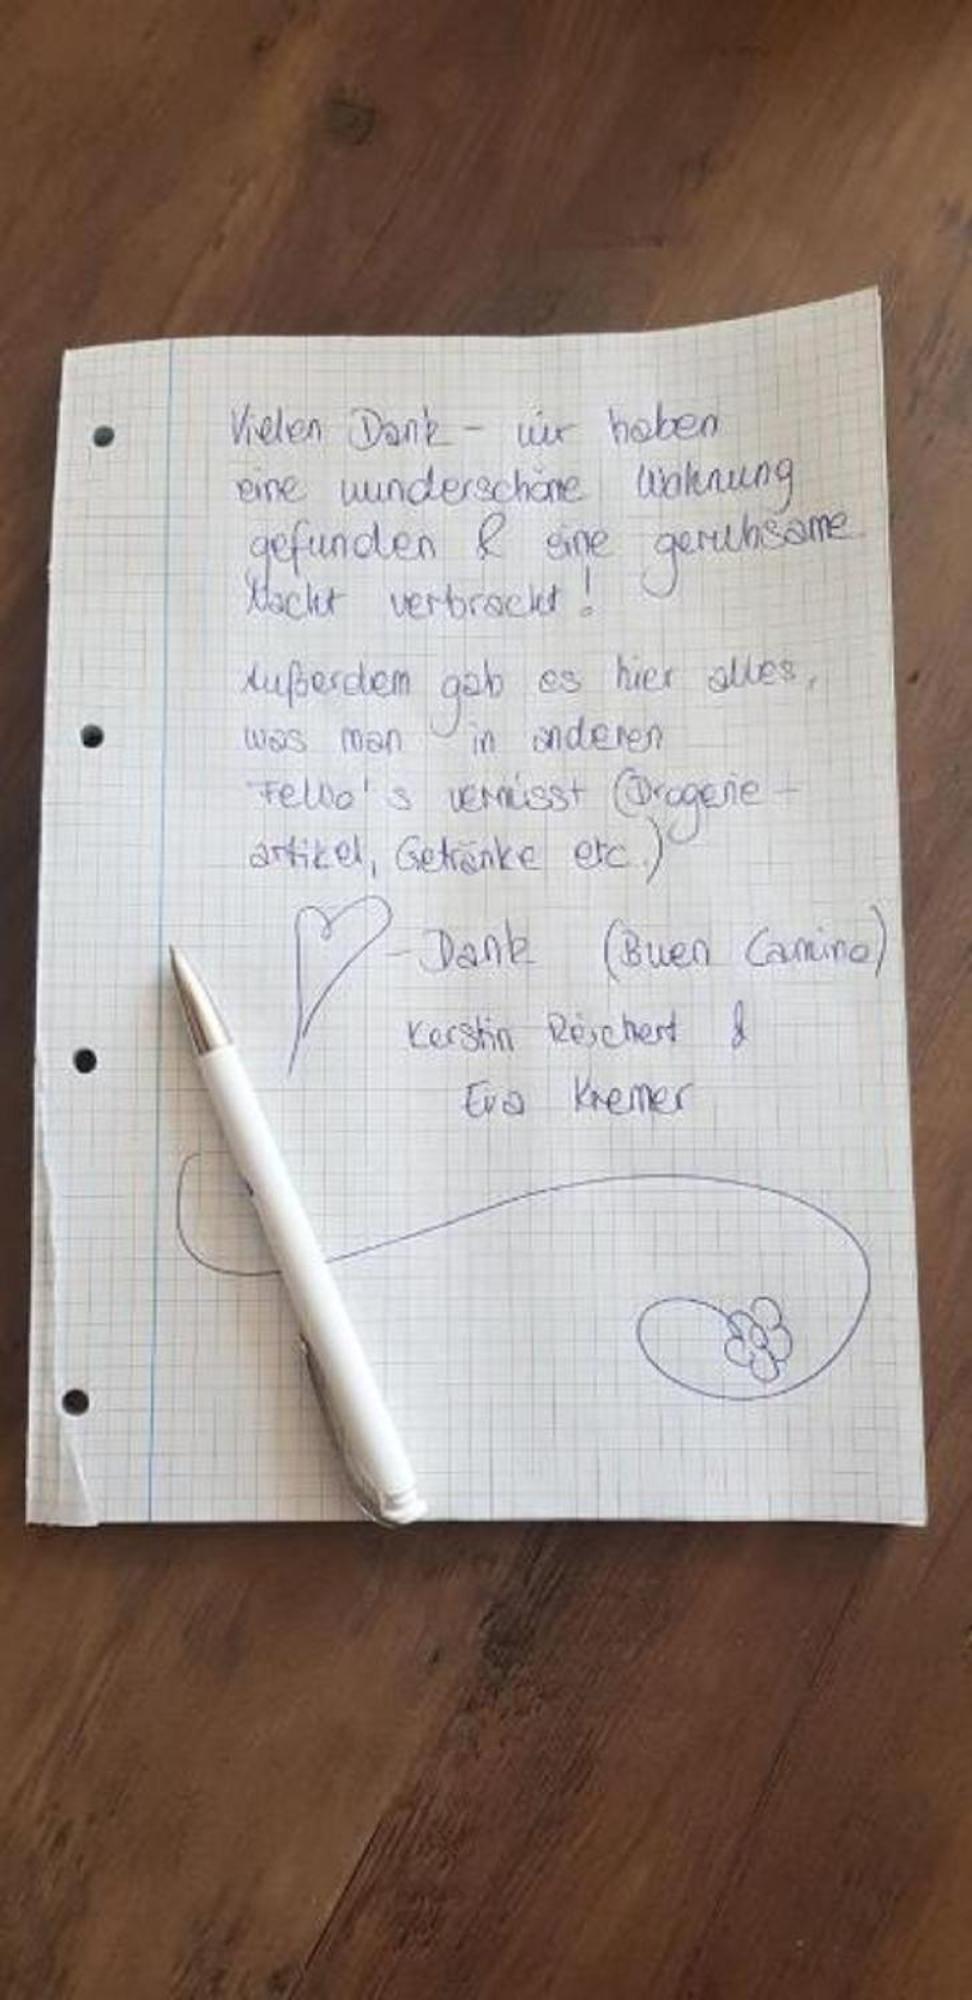 Vielen Dank - wir haben
eine wunderschöne Wohnung
gefunden & eine geruhsame
Nacht verbracht!
Außerdem gab es hier alles,
was man in anderen
FeWo's vermisst (Drogerie-
artikel, Getränke etc.)
- Dank (Buen Camino)
Kerstin Reichert &
Eva Kremer